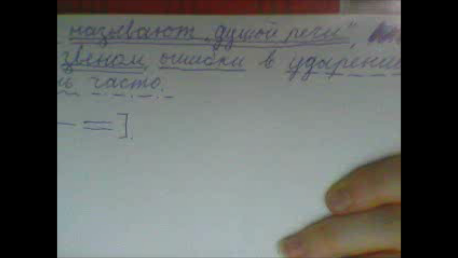 называют „душой речи",
звеном, ошибки в ударении
нь часто.
— =].